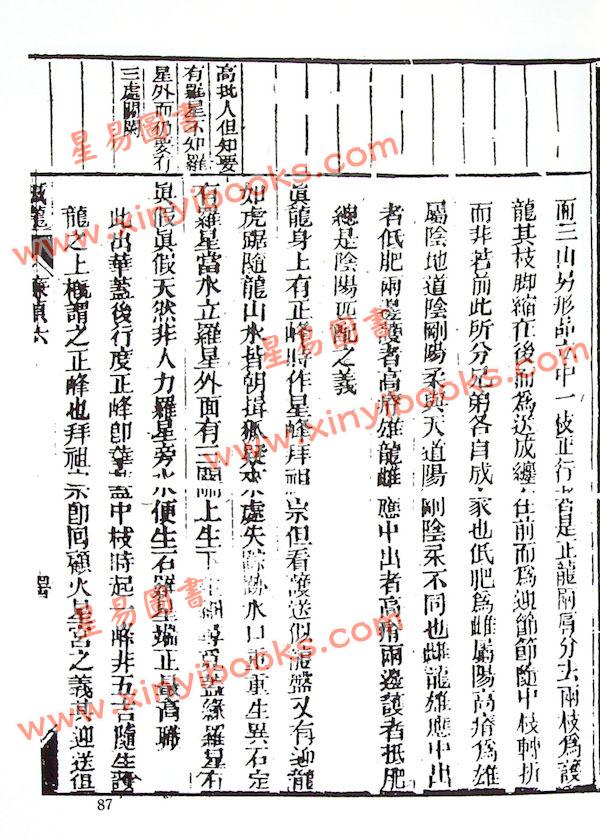 而三山另形品立中一枝正行者是正龍兩肩分去兩枝為護
龍其枝脚縮在後而為送成纏在前而為迎節節隨中枝轉折
而非若前此所分兄弟各自成家也低肥為雌屬陽高瘠為雄
屬陰地道陰剛陽柔與天道陽剛陰柔不同也雌龍雄應中出
者低肥兩邊護者高瘠雄龍雌應中出者高瘠兩邊護者抵肥
總是陰陽匹配之義
眞龍身上有正峰時作星峰拜祖宗但看護送似龍盤又有迎龍
如虎踞隨龍山水皆朝揖狐疑處失踪跡水口重重生異石定
有羅星當水立羅星外面有三關上生下
眞假眞假天然非人力羅星旁水便生石羅星端正最高職
此出華蓋後行度正峰即華蓋中枝時起一峰非五吉隨生
龍之上概謂之正峰也拜祖宗即回顧火星宮之義其迎送俱
高批人但知要
有羅星不知羅
星外面仍要有
三處關闌
星易圖書
www.xinyibooks.com
星易圖書
www.xinyibooks.com
星易圖書
www.xinyibooks.com
87